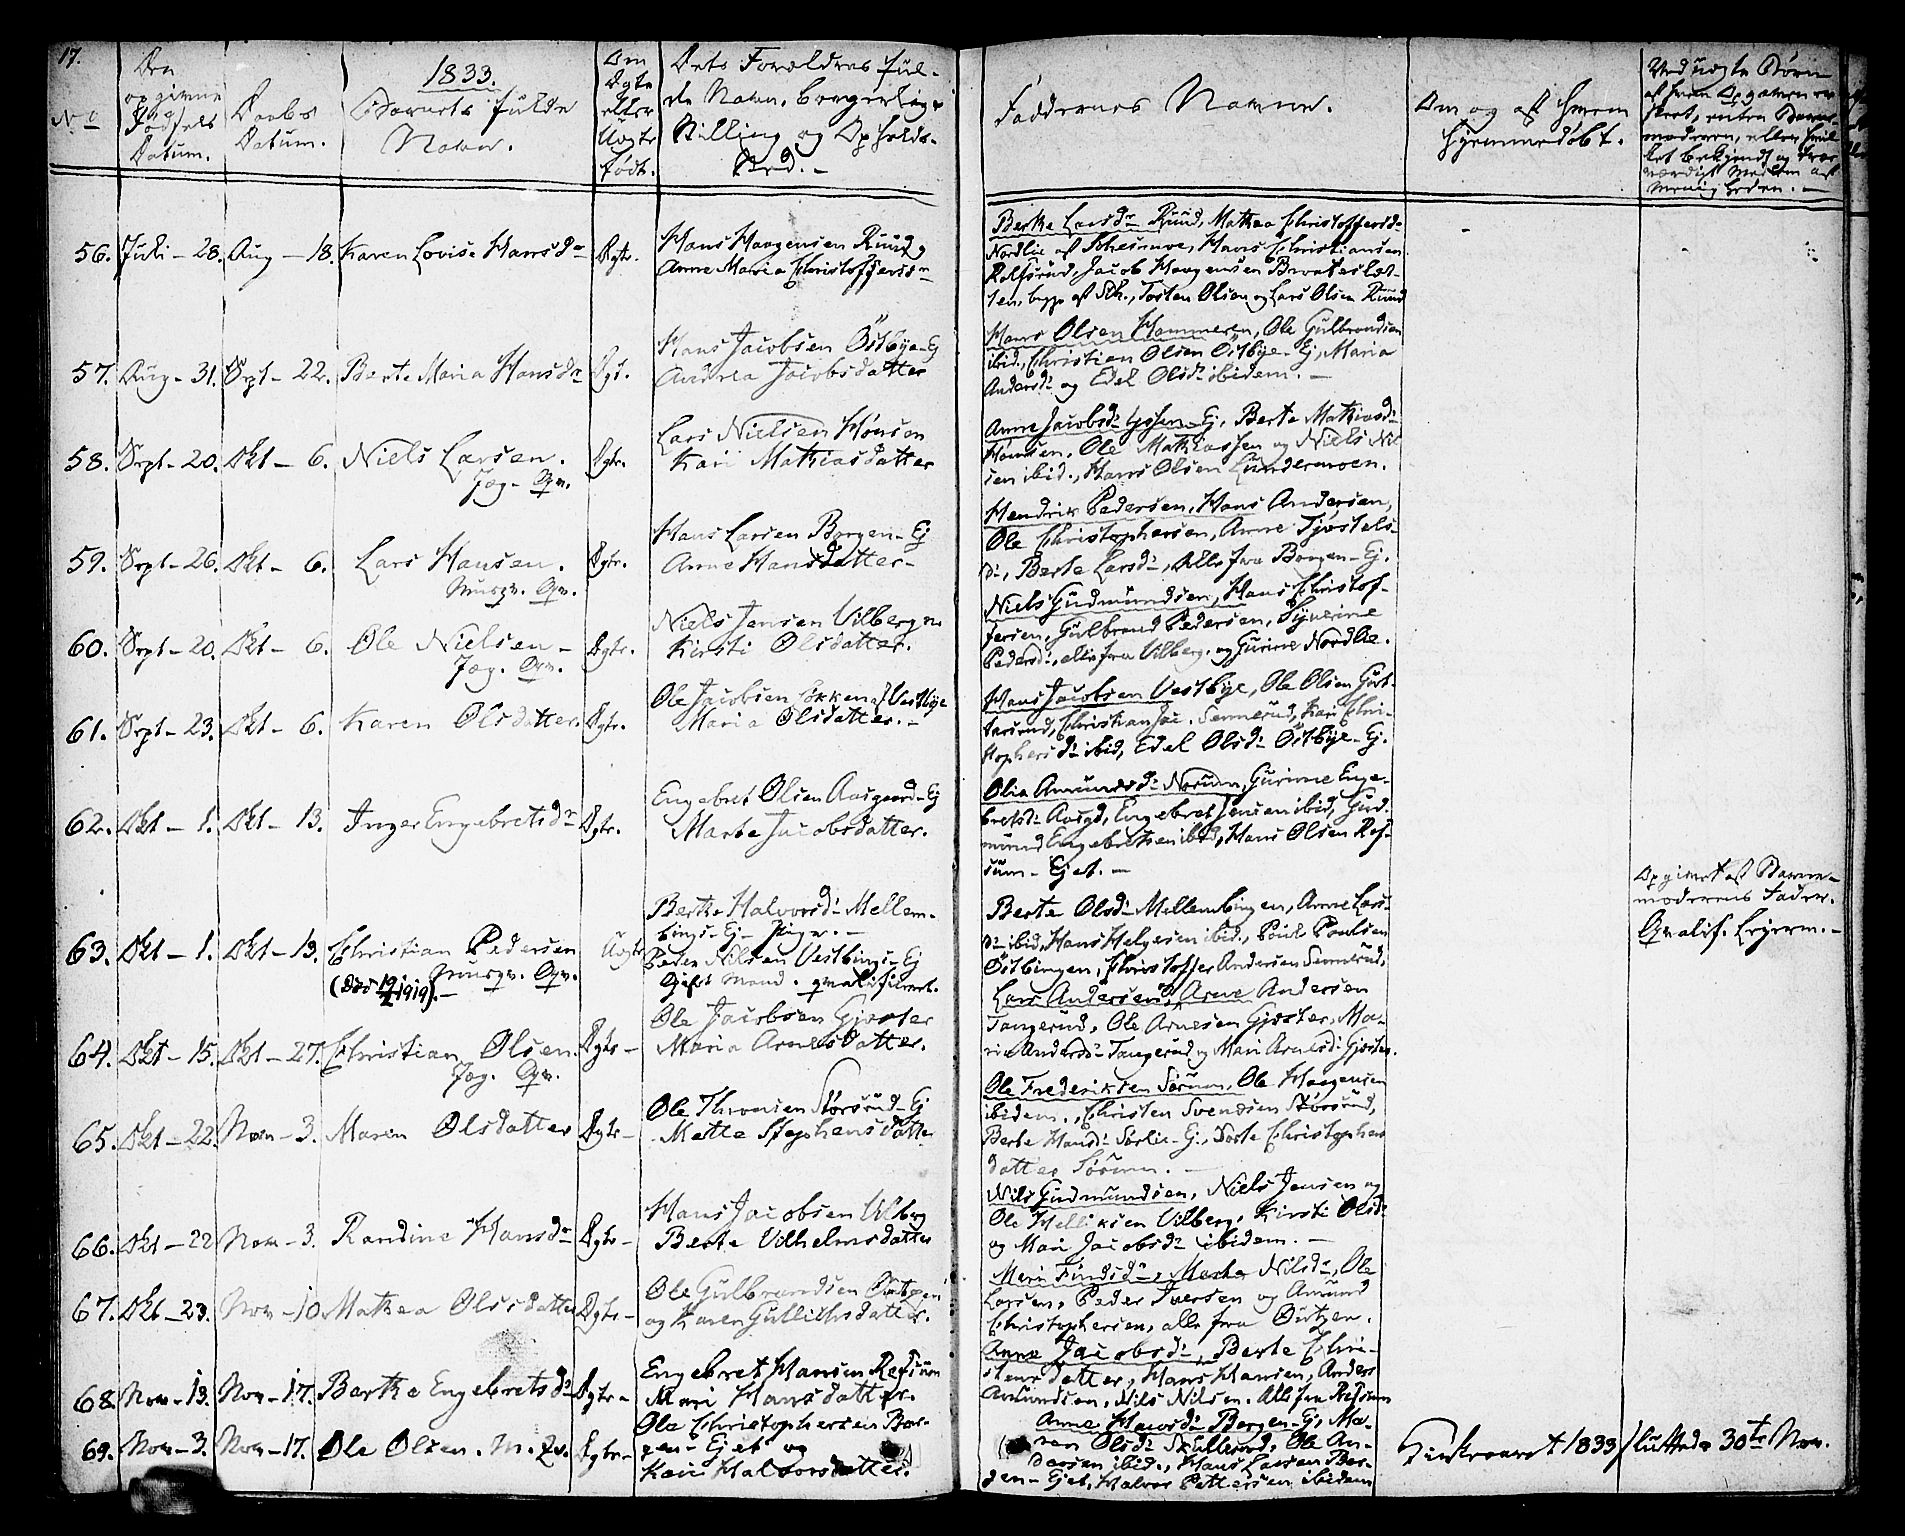 17.
1833.
No
Den opgivne Fødsels Datum.
Daabs Datum.
Barnets fulde Navn.
Om Ægte eller Uægte født.
Dets Forældres fulde Navn, borgerlige Stilling og Opholds-Sted. -
Faddernes Navne.
Om og af hvem hjemmedøbt.
Ved uægte Børn
56. Juli - 28. Aug - 18. Karen Lovise Hansdr Ægte.
Hans Haagensen Ruud og
Anne Maria Christoffersdr
Berthe Larsdr Ruud, Mathea Christoffersdr
Nordlie af Hans Christiansen
Rolfsrud, Jacob Haagensen
Tosten Olsen og Lars Olsen Ruud
57. Aug - 31. Sept - 22. Berte Maria Hansdr Ægt.
Hans Jacobsen Östbye-Ej
Andrea Jacobsdatter
Hans Olsen Hammeren, Ole Gulbrandsen
ibid., Christian Olsen Östbye-Ej, Maria
Andersdr og Edel Olsdr ibidem. -
58. Sept - 20. Okt - 6. Niels Larsen. Ægte.
Jæg. Qv.
Lars Nielsen Hønsen
Kari Mathiasdatter
Anne Jacobsdr Ej, Berte Mathiasdr
Hønsen, Ole Mathiassen og Niels Niel
sen ibid., Hans Olsen Lundermoen.
59. Sept - 26. Okt - 6. Lars Hansen. Ægte.
Musqv. Qv.
Hans Larsen Borgen-Ej
Anne Hansdatter-
Hendrik Pedersen, Hans Andersen,
Ole Christophersen, Anne Tjøstels
dr, Berte Larsdr, Alle fra Borgen-Ej.
60. Sept - 20. Okt - 6. Ole Nielsen - Ægte.
Jæg. Qv.
Niels Jensen Vilberg og
Kirsti Olsdatter.
Niels Gudmundsen, Hans Christof-
fersen, Gulbrand Pedersen,
Pedersdr, alle fra Vilberg. og Gurine Nordlie.
61. Sept - 23. Okt - 6. Karen Olsdatter. Ægte.
Ole Jacobsen Løkken af Vestbye
Maria Olsdatter. -
Hans Jacobsen Vestbye, Ole Olsen
Christian Jac. Sennerud, Kari Chri-
stophersdr ibid, Edel Olsdr Östbye-Ej.
62. Okt - 1. Okt - 13. Inger Engebretsdr Ægte.
Engebret Olsen Aasgaard-Ej
Marte Jacobsdatter.
Olia Amundsdr Norum, Gurine Enge-
bretsdr Aasgd, Engebret Jensen ibid, Gud-
mund Engebretsen ibid, Hans Olsen Ref-
sum-Ejet. -
63. Okt - 1. Okt - 13. Christian Pedersen Uægte
Musqv. Qv.
(død 19/4 1919). -
Berthe Halvorsdr Mellem-
bings-Ej- Pige. -
Peder Nilsen Vestbings-Ej
Gift Mand. qvalificeret.
Berte Olsdr Mellembingen, Anne Lars-
dr ibid, Hans Helgesen ibid, Poul Poulsen
Östbingen, Christoffer Andersen Sennerud,
Opgivet af Barne-
moderens Fader.
Qvalif. Leierm. -
64. Okt - 15. Okt - 27. Christian Olsen. Ægte -
Jæg. Qv.
Ole Jacobsen Gjøster
Maria Arnesdatter.
Lars Andersen, Arne Andersen
Tangerud, Ole Arnesen Gjøster, Ma-
rie Andersdr Tangerud og Mari Arnesdr Gjøster.
65. Okt - 22. Nov - 3. Maren Olsdatter Ægte -
Ole Thronsen Störsrud-Ej
Mette Stephensdatter
Ole Frederiksen Sörum, Ole Haagensen
ibidem., Christen Svendsen Störsrud,
Berte Hansdr Sörlie-Ej, Dorte Christophers
datter Sörum. -
66. Okt - 22 Nov - 3. Randine Hansdr Ægte -
Hans Jacobsen Vilberg
Berte Vilhelmsdatter
Nils Gudmundsen, Niels Jensen og
Ole Helliksen Vilberg, Kirsti Olsdr
og Mari Jacobsdr ibidem. -
67. Okt - 23. Nov - 10. Mathea Olsdatter Ægte -
Ole Gulbrandsen
og Karen Gulliksdatter.
Mari Findsdr, Marthe Nilsdr, Ole
Larsen, Peder Iversen og Amund
Christophersen, alle fra
68. Nov - 13. Nov - 17. Berthe Engebretsdr Ægte -
Engebret Hansen Refsum
Mari Hansdatter.
Anne Jacobsdr, Berte Chri-
stensdatter, Hans Hansen, Anders
Amundsen, Nils Nilsen. Alle fra Refsum
69. Nov - 3. Nov - 17. Ole Olsen. M. Qv. Ægte -
Ole Christophersen Bor-
gen-Ejet og
Kari Halvorsdatter.
Anne Hansdr Borgen-Ej, Ma-
ren Olsdr Skullerud, Ole An-
dersen ibid., Hans Larsen Bor-
gen-Ejet, Halvor Pettersen ibidem
Kirkeaaret 1833 sluttede 30te Nov.